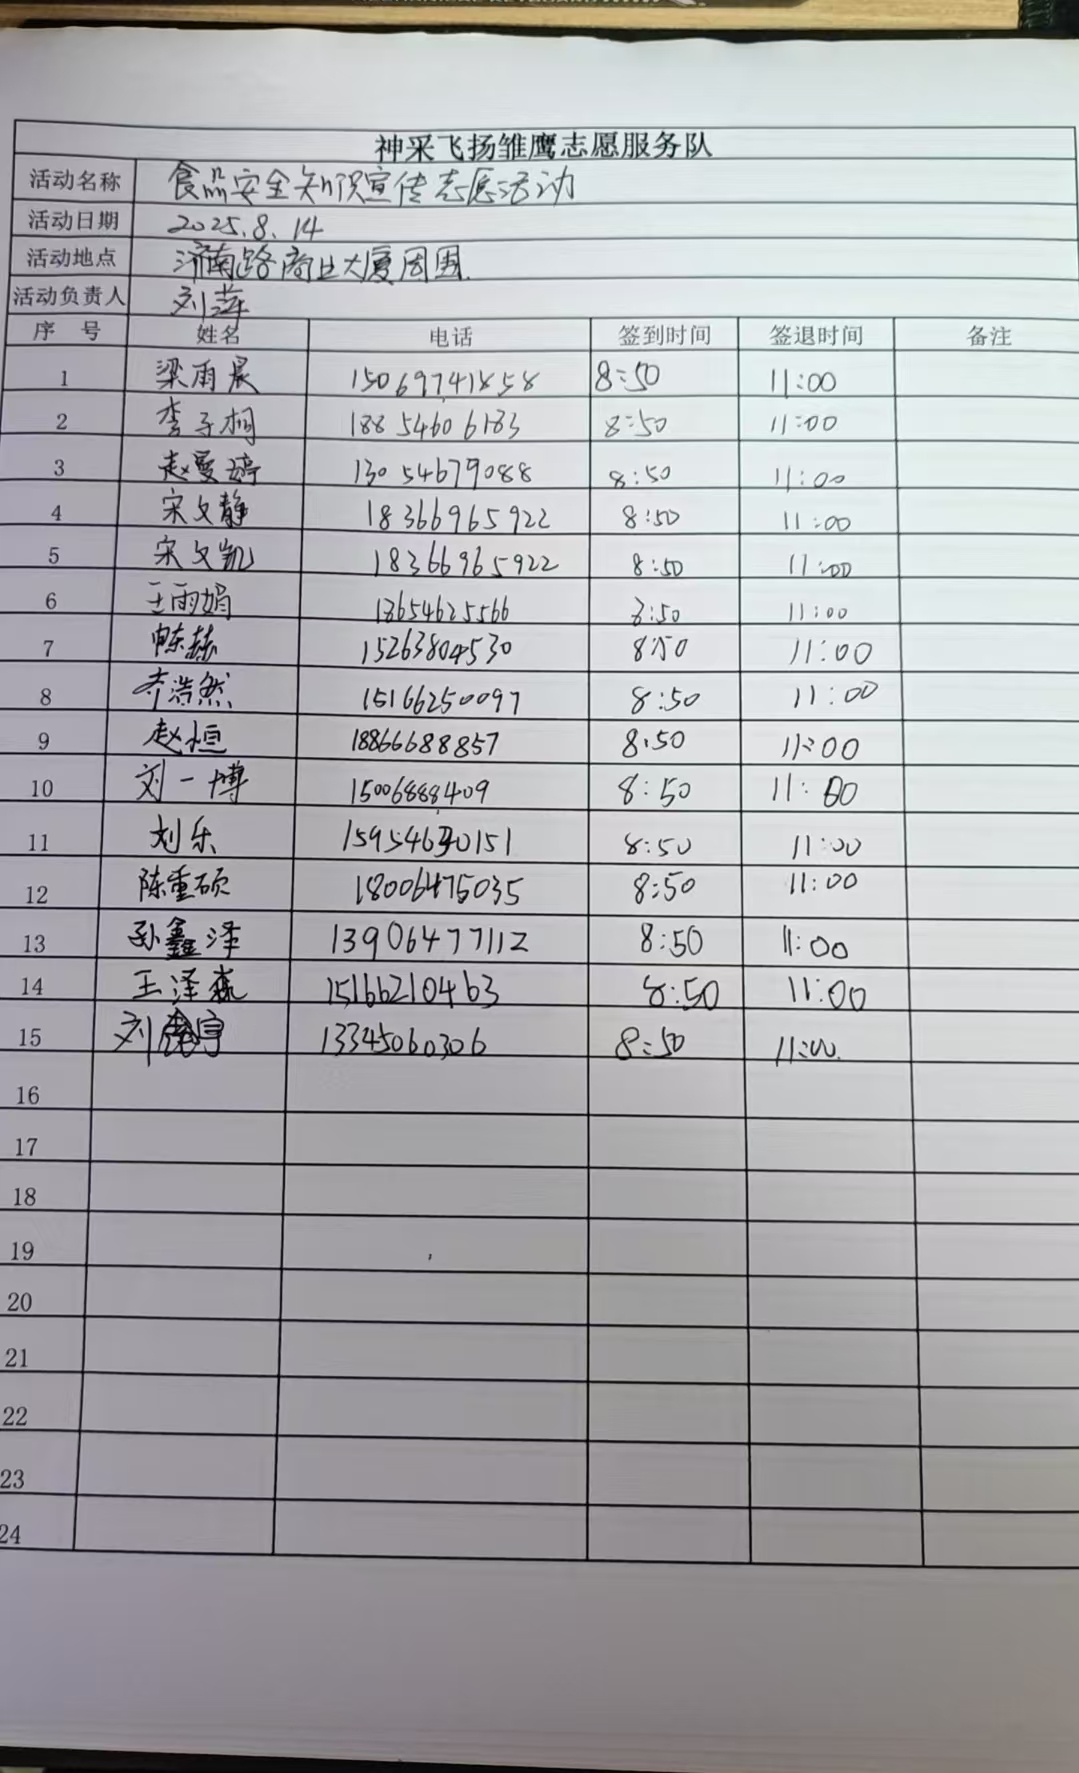 神采飞扬雏鹰志愿服务队
活动名称 食品安全知识宣传志愿活动
活动日期 2025.8.14
活动地点 济南路商业大厦周围.
活动负责人 刘萍
序 号 姓名 电话 签到时间 签退时间 备注
1 梁雨晨 15069741858 8:50 11:00
2 李子桐 18854606183 8:50 11:00
3 赵曼婷 13054679088 8:50 11:00
4 宋文静 18366965922 8:50 11:00
5 宋文凯 18366965922 8:50 11:00
6 王雨娟 13654625566 8:50 11:00
7 15263804530 8:50 11:00
8 李浩然 15166250097 8:50 11:00
9 赵恒 18866688857 8:50 11:00
10 刘一博 15006888409 8:50 11:00
11 刘乐 8:50 11:00
12 陈重硕 18006475035 8:50 11:00
13 孙鑫泽 13906477112 8:50 11:00
14 王泽森 15166210463 8:50 11:00
15 刘 宇 13345060306 8:50 11:00.
16
17
18
19
20
21
22
23
24